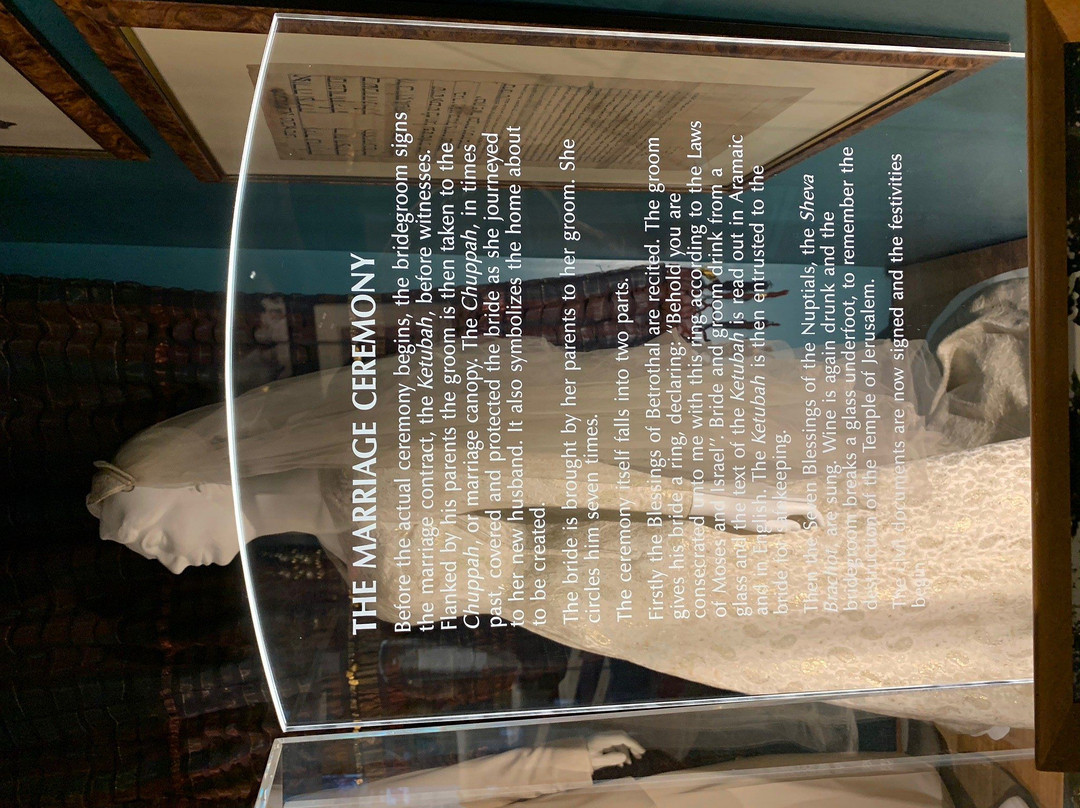 THE MARRIAGE CEREMONY
Before the actual ceremony begins, the bridegroom signs
the marriage contract, the Ketubah, before witnesses.
Flanked by his parents the groom is then taken to the
Chuppah, or marriage canopy. The Chuppah, in times
past, covered and protected the bride as she journeyed
to her new husband. It also symbolizes the home about
to be created
The bride is brought by her parents to her groom. She
circles him seven times.
The ceremony itself falls into two parts.
Firstly the Blessings of Betrothal are recited. The groom
gives his bride a ring, declaring: "Behold you are
consecrated to me with this ring according to the Laws
of Moses and Israel". Bride and groom drink from a
glass and the text of the Ketubah is read out in Aramaic
and in English. The Ketubah is then entrusted to the
bride for safekeeping.
Then the Seven Blessings of the Nuptials, the Sheva
Brachot, are sung. Wine is again drunk and the
bridegroom breaks a glass underfoot, to remember the
destruction of the Temple of Jerusalem.
The civil documents are now signed and the festivities
begin.